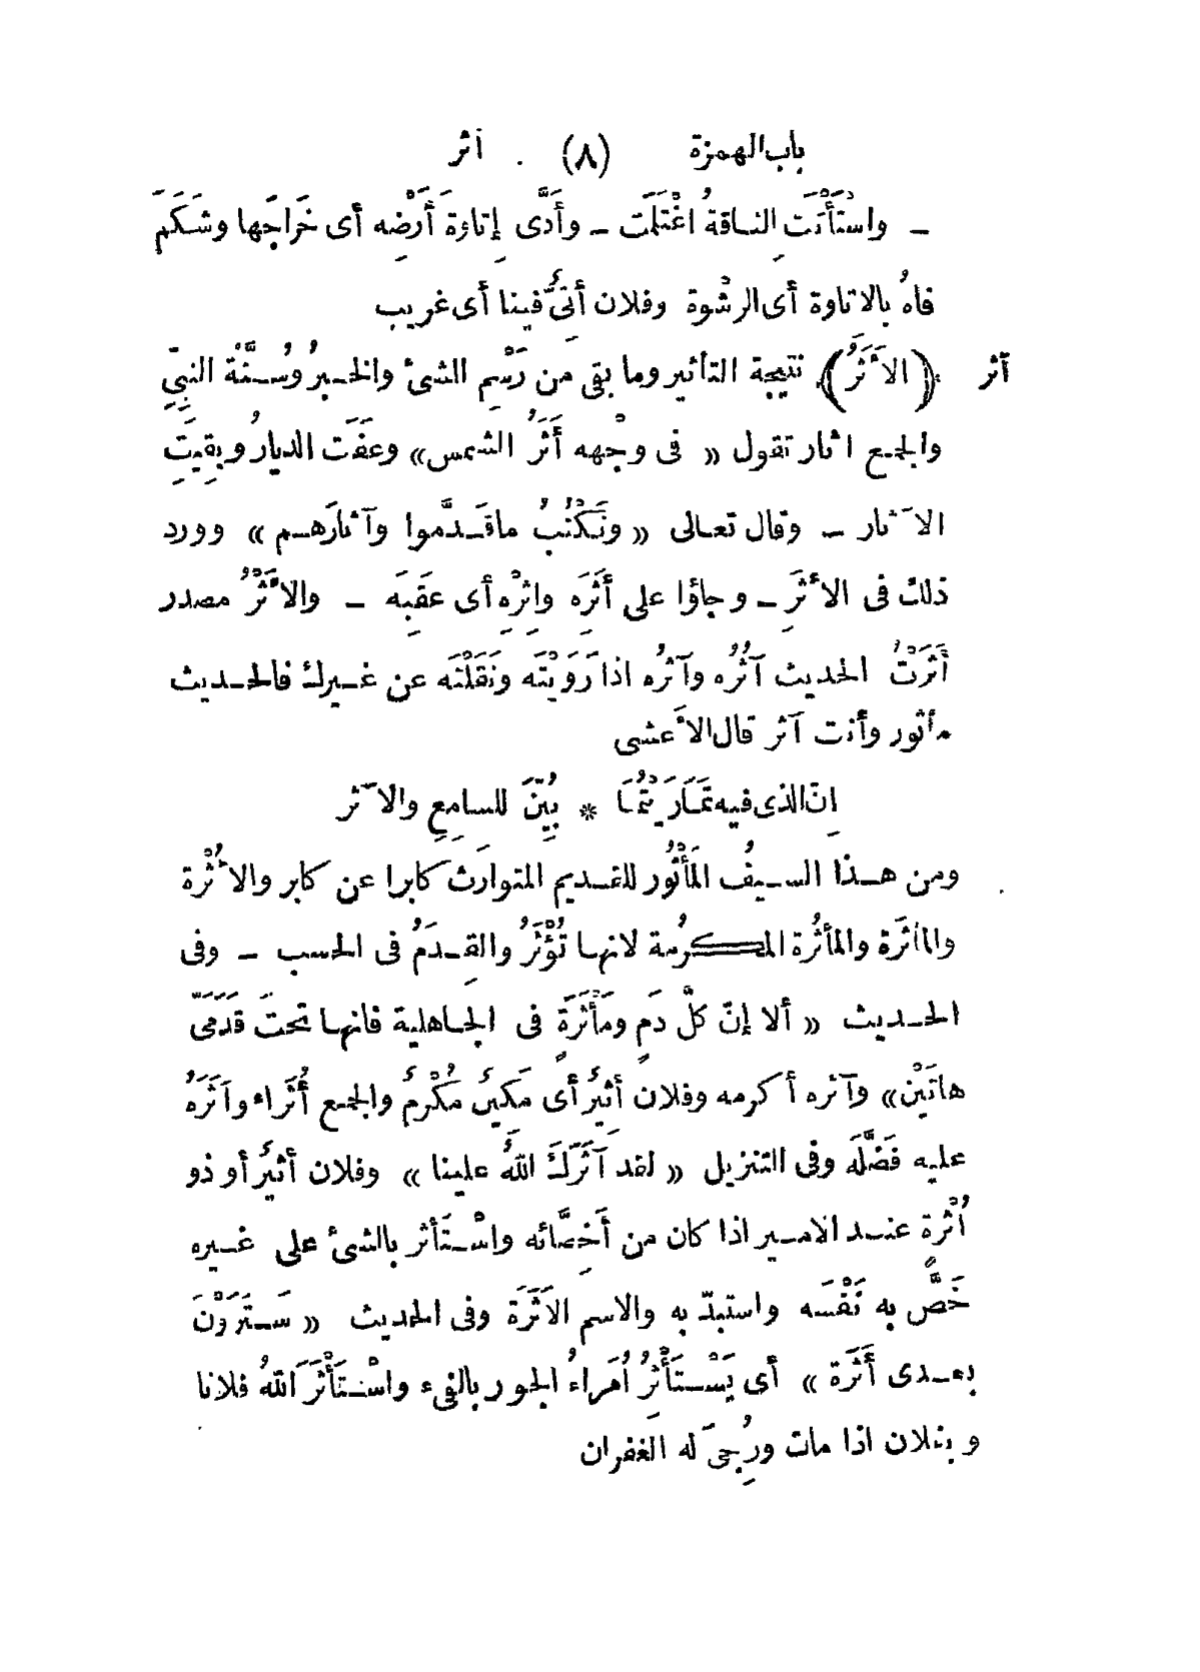 باب الهمزة (٨) . أثر
ـ واسْتَأْتَتِ الناقةُ اغْتَلَمَت ـ وأَدَّى إِتاوَةَ أَرْضِه أى خَراجَها وشَكَمَ
فاهُ بالاتاوة أى الرشْوة وفلان أَتِىٌّ فينا أى غريب
أثر ﴿الاَثَرُ﴾ نتيجة التأثير وما بقى من رَسْمِ الشئ والخبرُ وسُنَّةُ النبِىِّ
والجمع اثار تقول « فى وجْهه أَثَرُ الشمس» وعفَت الديارُ وبقِيَتِ
الآثار ـ وقال تعالى « ونَكْتُبُ ماقَدَّموا وآثارَهم » وورد
ذلك فى الأثَرِ ـ وجاؤا على أَثَرَِه واِثرِْهِ أى عقَبِه ـ والاَثْرُ مصدر
أَثَرْتُ الحديث آثُرُه وآثرُه اذا رَوَيْتَه ونَقَلْتَه عن غيرك فالحديث
مأثور وأنت آثر قال الأعشى
اِنّ الذى فيه تمَارَيْتُمَا * بُيِّنَ للسامِعِ والآثر
ومن هذا السيفُ المَأْثُور للقديم المتوارَث كابرا عن كابر والأُثْرة
والمأثَرة والمأثُرة المكرُمة لانها تُؤْثَرُ والقِدَمُ فى الحسب ـ وفى
الحديث « ألا إنّ كلَّ دَمٍ ومَأْثَرَةٍ فى الجاهلية فانها تحتَ قَدَمَىَّ
هاتَيْن» وآثره أكرمه وفلان أَثِيرُ أى مَكِينُ مُكْرَمُ والجمع أُثَراء وآثَرَهُ
عليه فَضَّلَه وفى التنزيل « لقد آثَرَكَ اللهُ علينا » وفلان أثيرُ أو ذو
أُثْرةٍ عند الامير اذا كان من أَخِصَّائه واسْتَأثر بالشئ على غيره
خَصَّ به نَفْسَه واستبدّ به والاسم الاَثَرَة وفى الحديث « سَتَرَوْنَ
بعدى أَثَرَة » أى يَسْتَأْثِرُ اُمَراءُ الجور بالفىء واسْتَأْثَرَ اللهُ فلانا
وبفلان اذا مات ورُجِىَ له الغفران